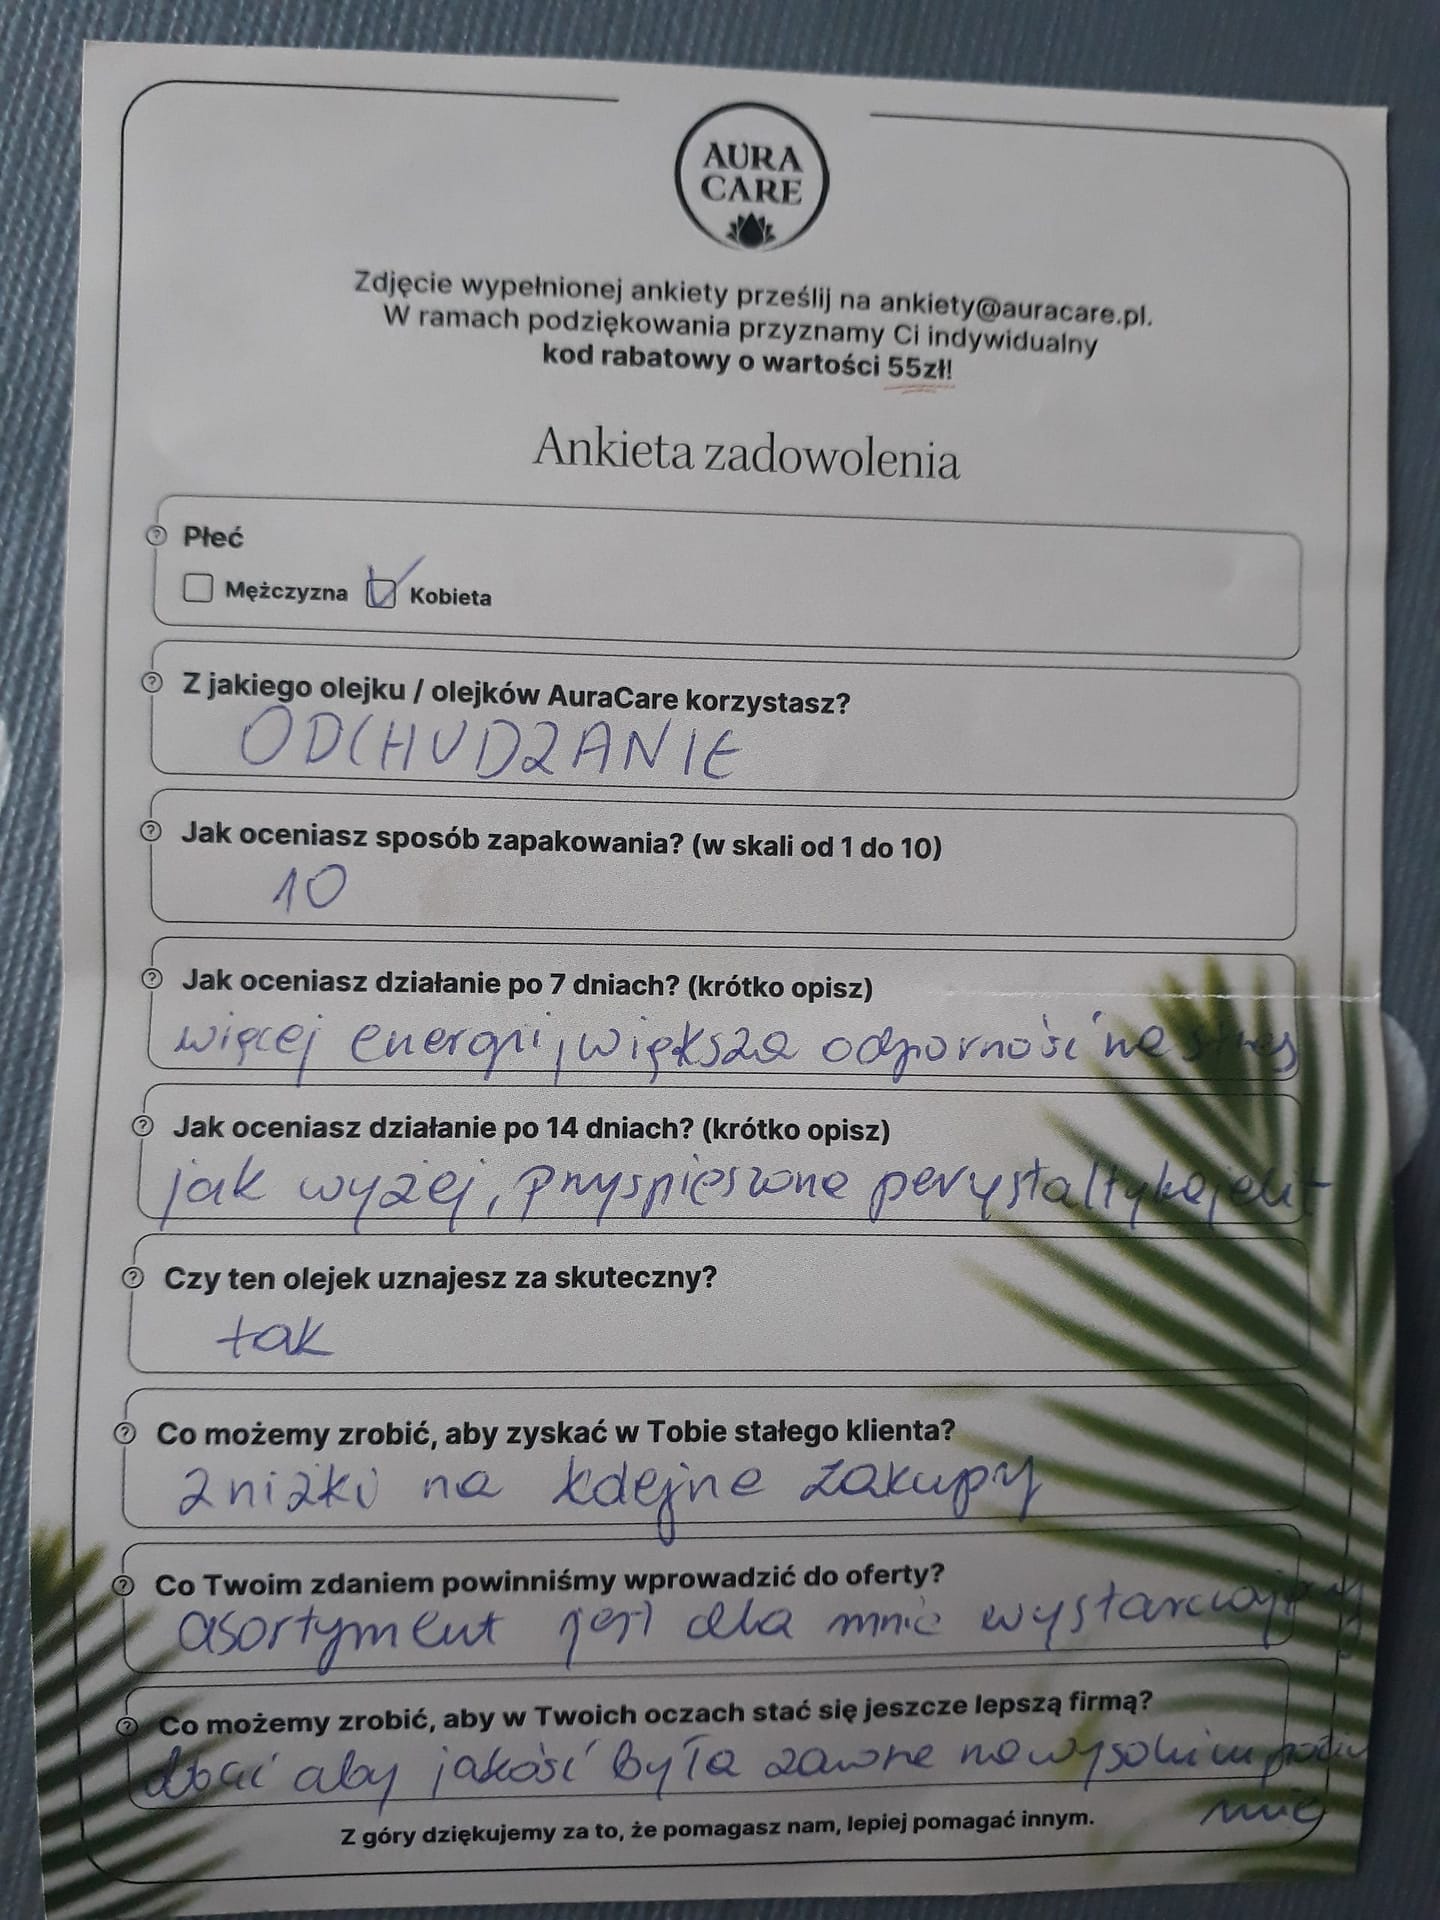 AURA
CARE
Zdjęcie wypełnionej ankiety prześlij na ankiety@auracare.pl.
W ramach podziękowania przyznamy Ci indywidualny
kod rabatowy o wartości 55zł!
Ankieta zadowolenia
Płeć
Mężczyzna Kobieta
Z jakiego olejku / olejków AuraCare korzystasz?
ODCHUDZANIE
Jak oceniasz sposób zapakowania? (w skali od 1 do 10)
10
Jak oceniasz działanie po 7 dniach? (krótko opisz)
więcej energii, większa odporność na stres
Jak oceniasz działanie po 14 dniach? (krótko opisz)
jak wyżej, przyspieszona perystaltyka jelit
Czy ten olejek uznajesz za skuteczny?
tak
Co możemy zrobić, aby zyskać w Tobie stałego klienta?
zniżki na kolejne zakupy
Co Twoim zdaniem powinniśmy wprowadzić do oferty?
asortyment jest dla mnie wystarczający
Co możemy zrobić, aby w Twoich oczach stać się jeszcze lepszą firmą?
dbać aby jakość była zawsze na wysokim pozio
mie
Z góry dziękujemy za to, że pomagasz nam, lepiej pomagać innym.